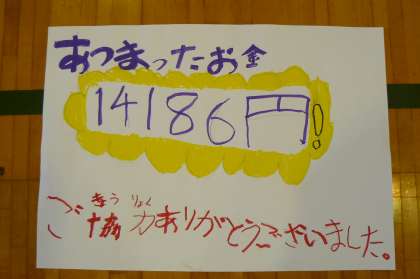 あつまったお金
14186円!
ご協力ありがとうございました。
きょう りょく